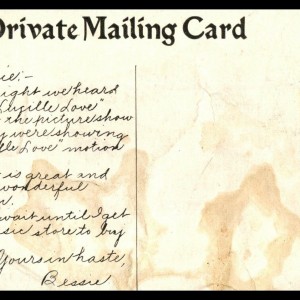 Private Mailing Card
ie:-
ight we heard
Lucille Love"
the picture show
y were showing
lle Love" motion
is great and
wonderful
wait until I get
sic store to buy
Yours in haste,
Bessie